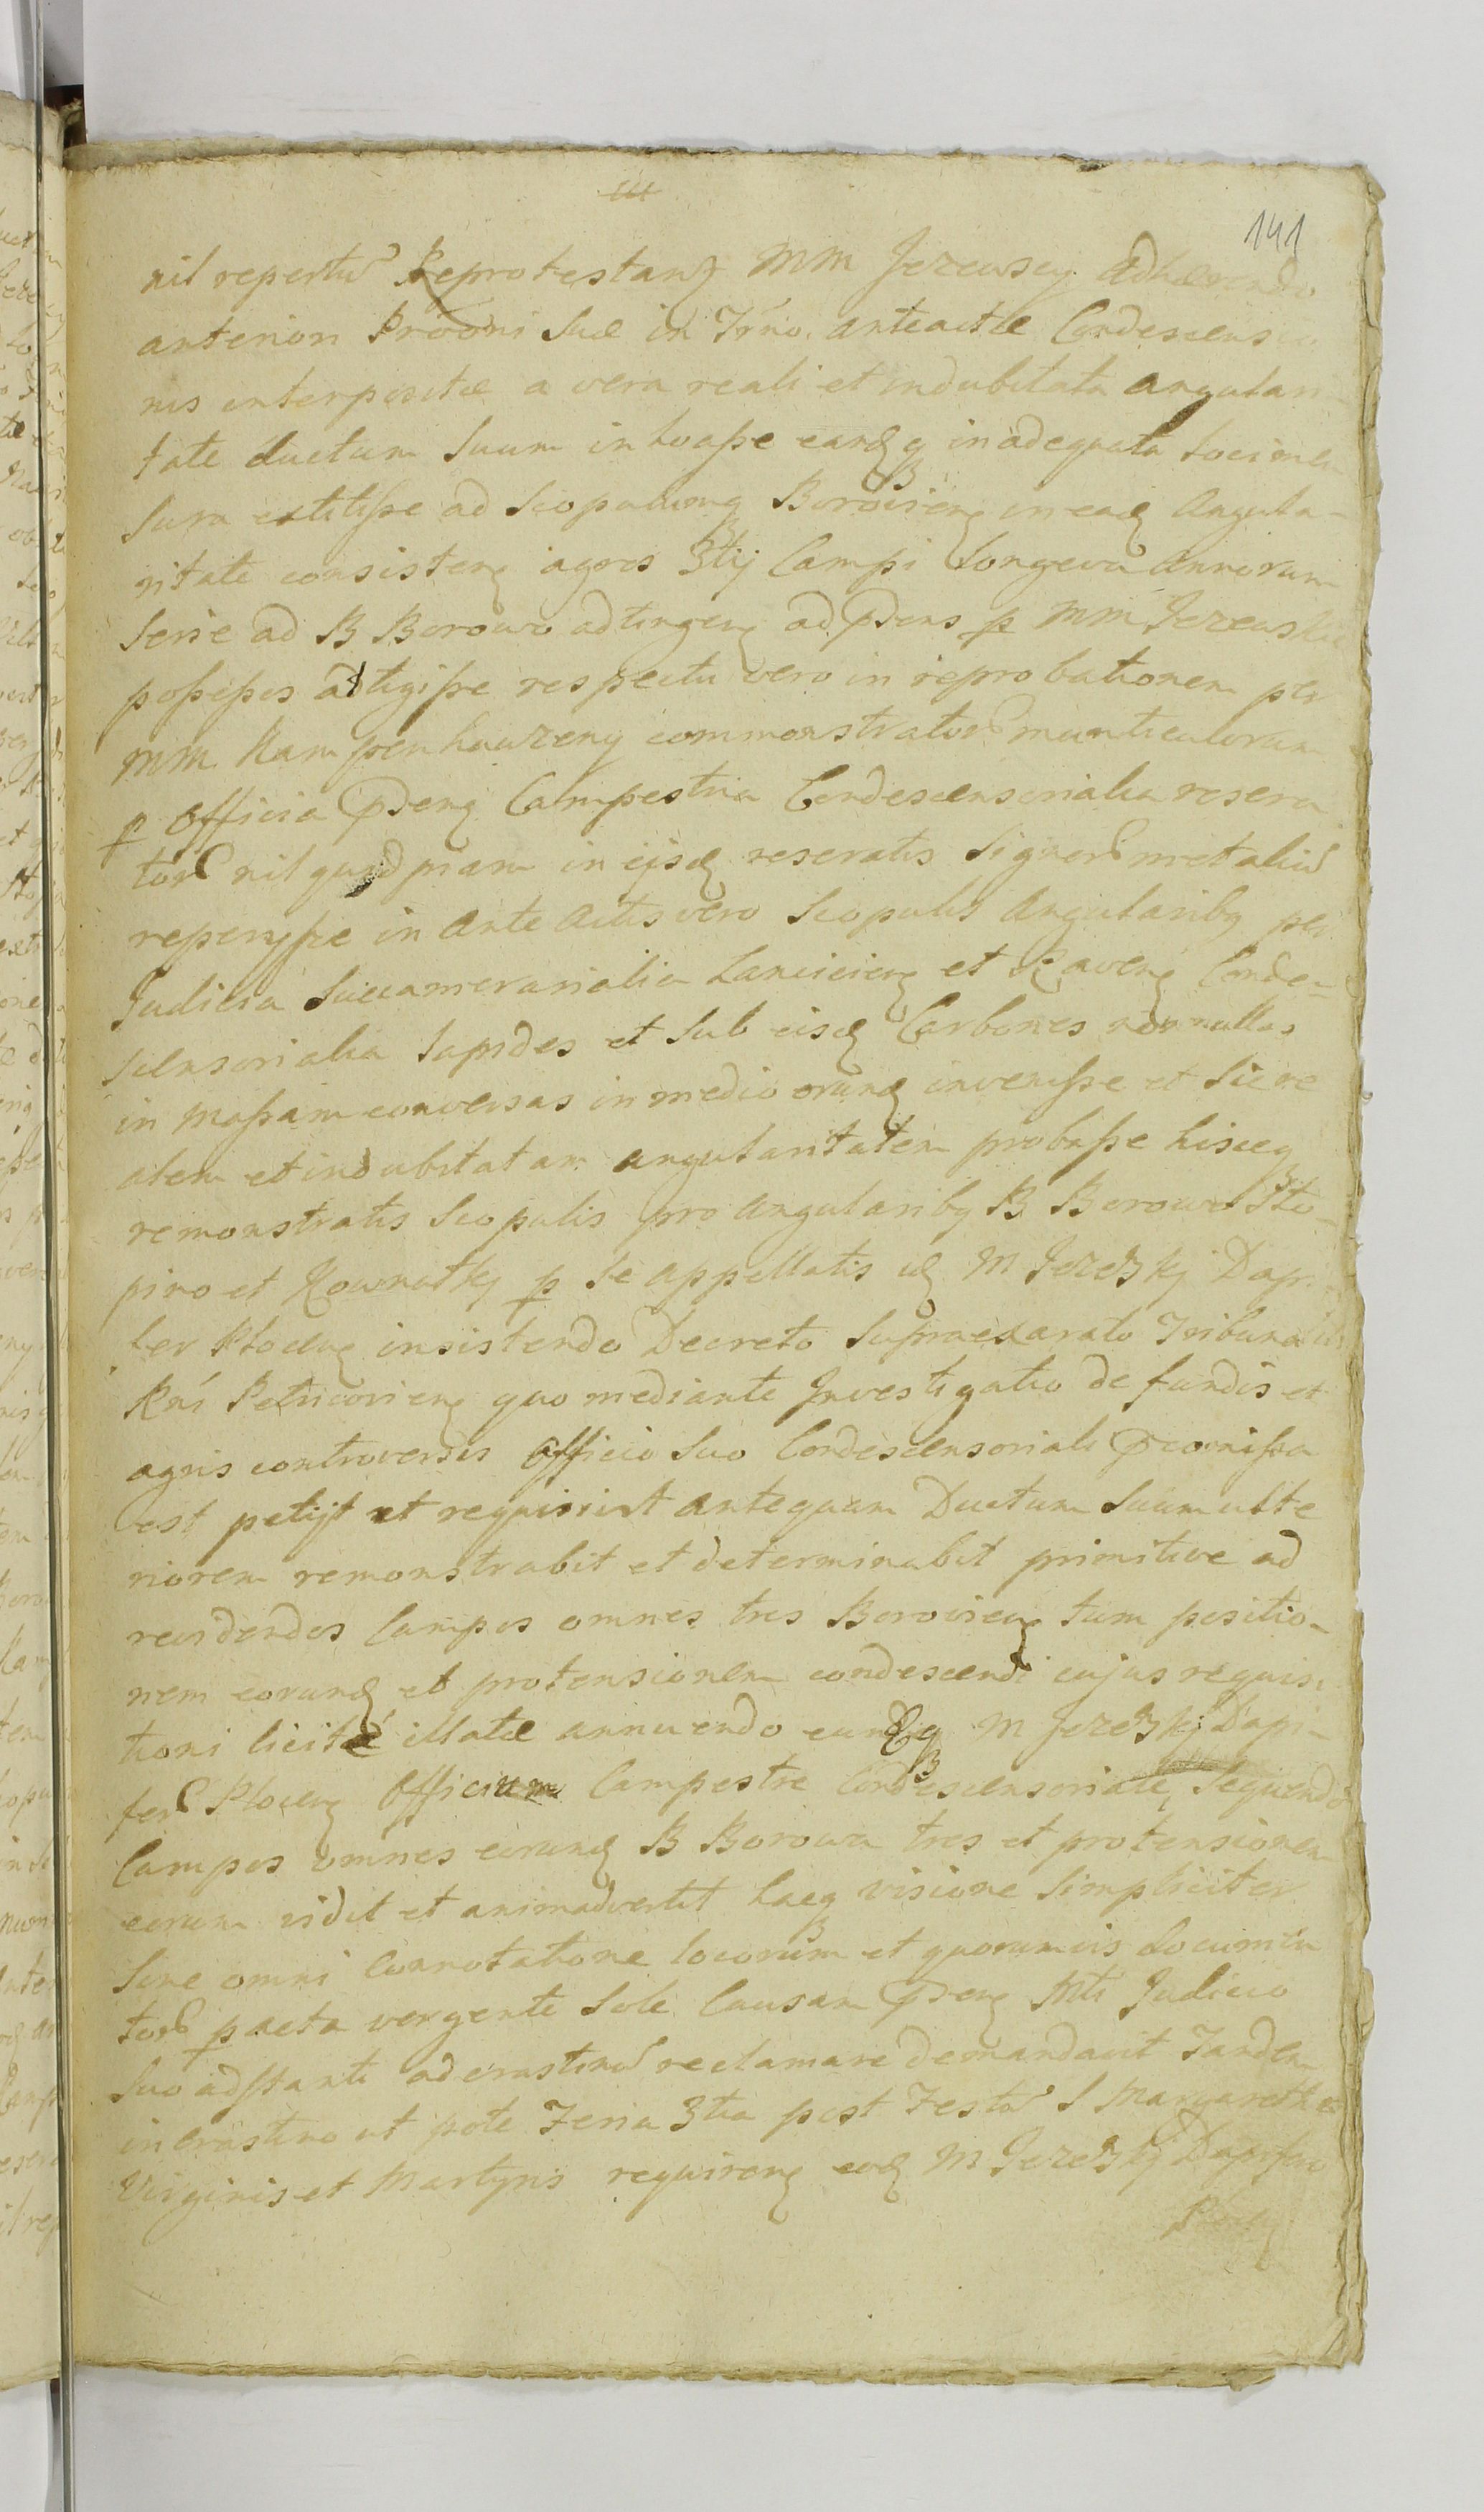 141
nil repertu Reprotestantz MM Jezewscy Adhaerendo
anteriori Prooni Suae in Trno anteactae Condescensio
nis interpositae a vera reali et indubitata angulari-
tate ductum Suum inhoasse eandq inadequata Loci men
Sura extitisse ad Scopulumq Borovien in ead Angula-
ritate consisten agros 3tij Campi Longeva Annorum
Serie ad B Borowo adtingen ad pdens p MM Jezewskie
possessos attigisse respectu vero in reprobationem per
MM Kampenhauzeny commonstrator monticulorum
p Officia pden Campestria Condescensorialia resera
tor nil quidpiam in ijsd reseratis Signor metaliu
reperysse in Ante Actis vero Scopulis Angularibq per
Judicia Succamerarialia Lancicien et Raven Conde-
scensorialia Lapides et Sub eisd Carbones nonnullos
in Massam conversas in medio orund invenisse et Sic re
alem et indubitatam angularitatem probasse hisceq
remonstratis Scopulis pro angularibq B Borowo Sto-
piro et Kownatky p Se appellatis id M Jezewskj Dapi-
fer Plocen insistendo Decreto Supraexarato Tribunalis
Rni Petricovien quo mediante Investigatio de fundis et
agris controversis Officio Suo Condescensoriali pcomissa
est petijt et requisivit antequam Ductum Suum ulte
riorem remonstrabit et determinabit primitive ad
revidendos Campos omnes tres Borovien tum positio-
nem eorund et protensionem condescendi cujus requisi
tioni licitae illatae annuendo eundq M Jezewskj Dapi-
fer Plocen Officium Campestre Condescensoriale Sequendo
Campos omnes eorund B Borowa tres et protensionem
eorum vidit et animadvertit hacq visione Simpliciter
Sine omni Connotatione locorum et quorumvis documen
tor pacta vergente Sole Causam pden Mti Judicio
Suo adstanti ad crastinu reclamare demandavit Tandem
in crastino ut pote Feria 3tia post Festu S Margarethae
Virginis et Martyris requiren eod M Jezewskj Dapifero
Plocen